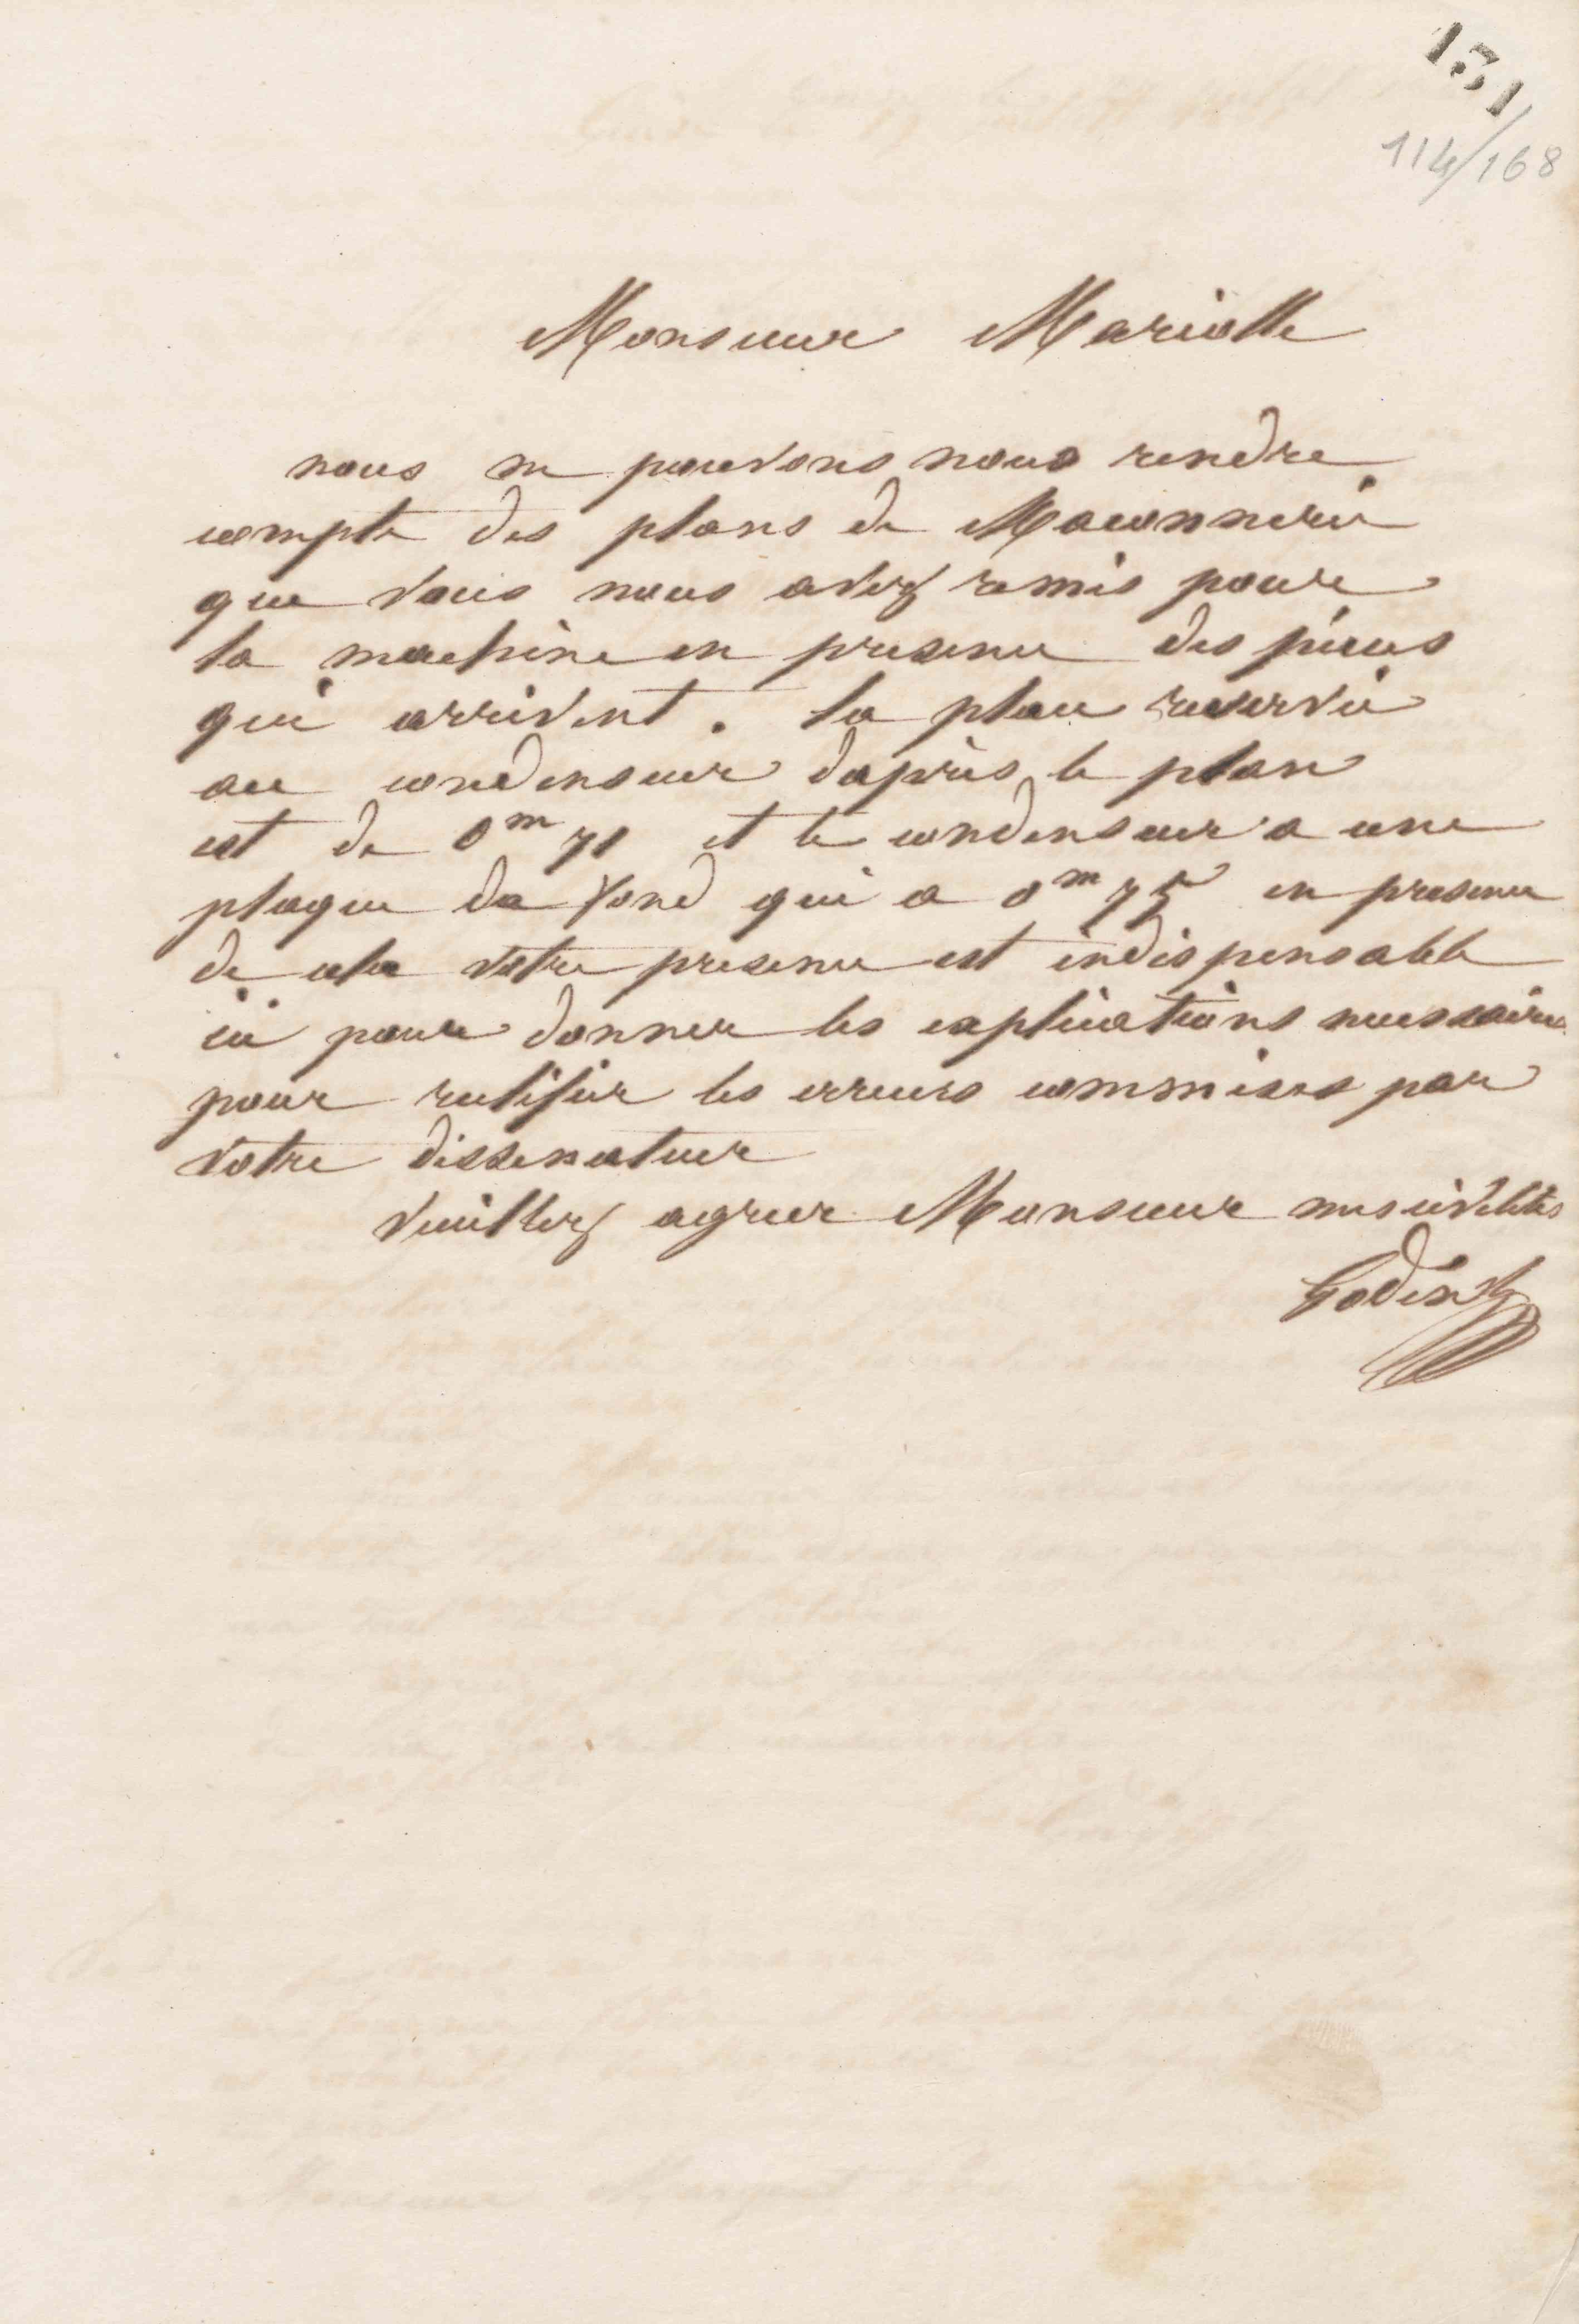 131
114/168
Monsieur Mariolle
nous ne pouvons nous rendre
compte des plans de Maconnerie
que vous nous avez remis pour
la machine en presence des pieces
qui arrivent. la place reservée
au condenseur dapres le plan
est de 0m 71 et le condenseur a une
plaque de fond qui a 0m 75 en presence
de cela votre presence est indispensable
ici pour donner les explications necessaires
pour rectifier les erreurs commises par
votre dissenateur
Veuillez agreer Monsieur mes civilités
Godin